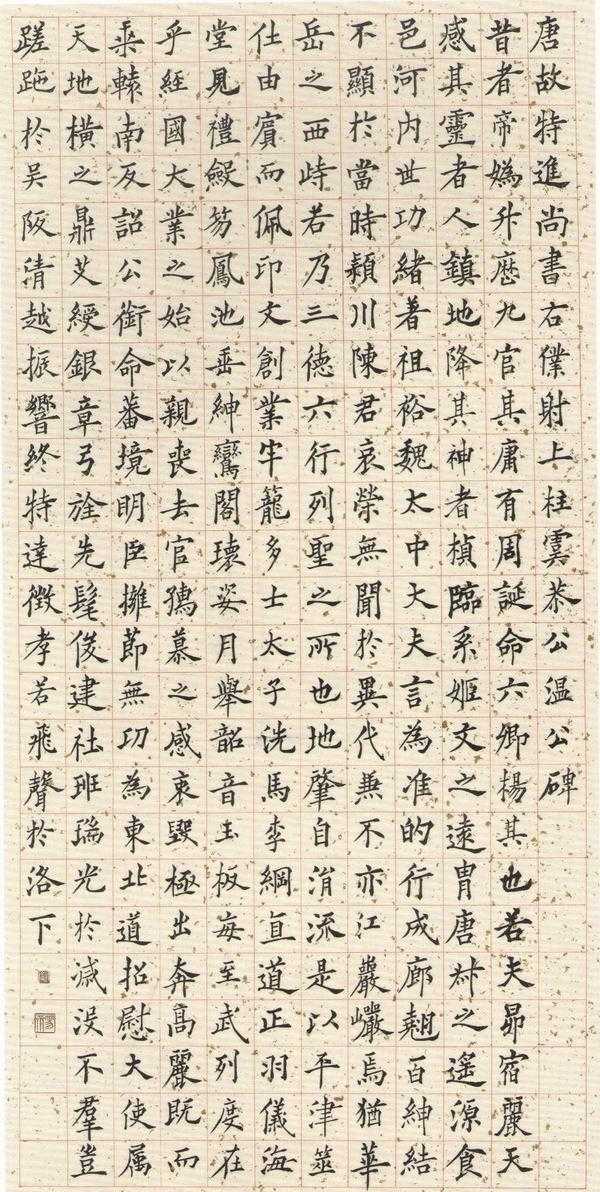 唐故特進尚書右僕射上柱虞恭公温公碑
昔者帝媯升歷九官其庸有周誕命六卿楊其也若夫昴宿麗天
感其靈者人鎮地降其神者楨臨系姬文之遠胄唐叔之遥源食
邑河内世功緒著祖裕魏太中大夫言為准的行成廊翹百紳結
不顯於當時穎川陳君哀榮無聞於異代兼不亦江巖巘焉猶華
岳之西峙若乃三德六行列聖之所也地肇自渭流是以平津筮
仕由賓而佩印文創業牢籠多士太子洗馬李綱直道正羽儀海
堂見禮笏鳳池垂紳鸞閣瓌姿月舉韶音玉板每至武列度在
乎經國大業之始以親喪去官慕之感哀毀極出奔高麗既而
乘轅南反詔公銜命蕃境明臣擁節無功為東北道招慰大使属
天地橫之鼎艾綬銀章弓旌先髦俊建社班瑞光於減没不羣豈
蹉跎於吴阪清越振響終特達徵孝若飛聲於洛下